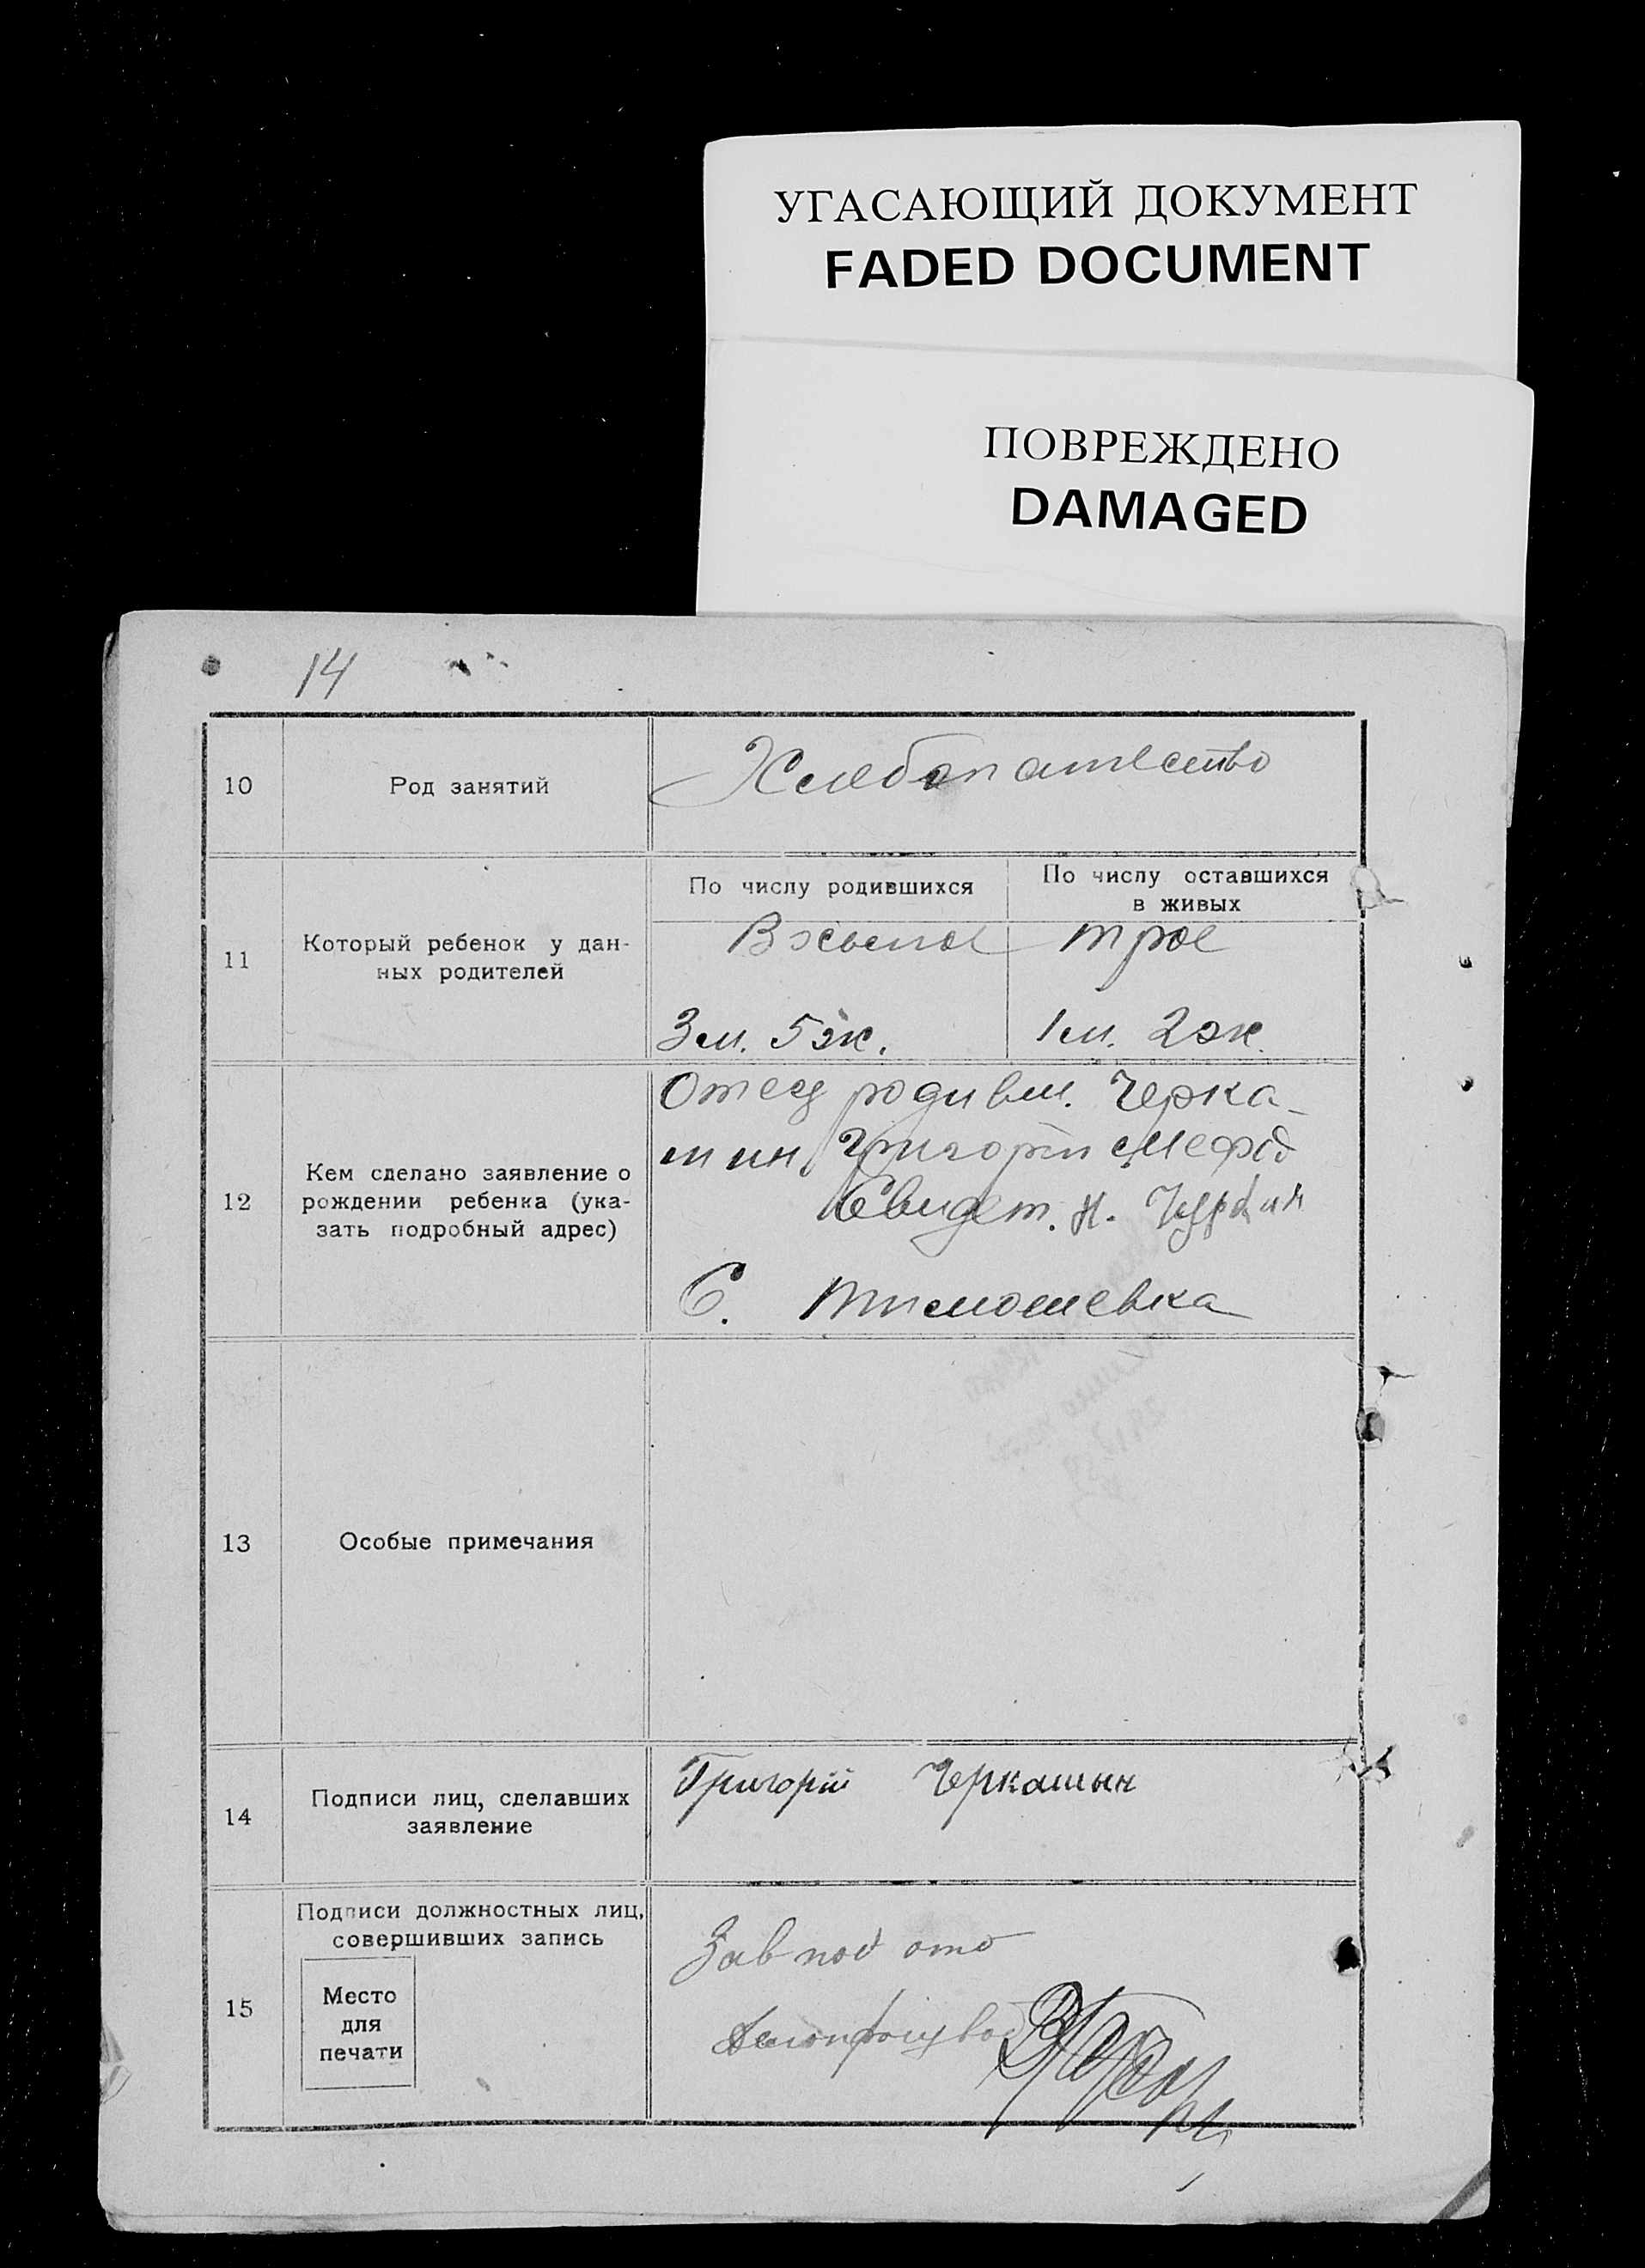 УГАСАЮЩИЙ ДОКУМЕНТ
FADED DOCUMENT
ПОВРЕЖДЕНО
DAMAGED
14
10 Род занятий Хлебопашество
11 Который ребенок у дан-
ных родителей
По числу родившихся
По числу оставшихся
в живых
трое
3 м. 5 ж. 1 м. 2 ж.
12 Кем сделано заявление о
рождении ребенка (ука-
зать подробный адрес)
Отец родивш. Черка-
шин Григорій Мефод
Свидет. Н.
С. Тимошевка
13 Особые примечания
14 Подписи лиц, сделавших
заявление
Григорій Черкашын
15 Подписи должностных лиц,
совершивших запись
Место
для
печати
Зав под отд